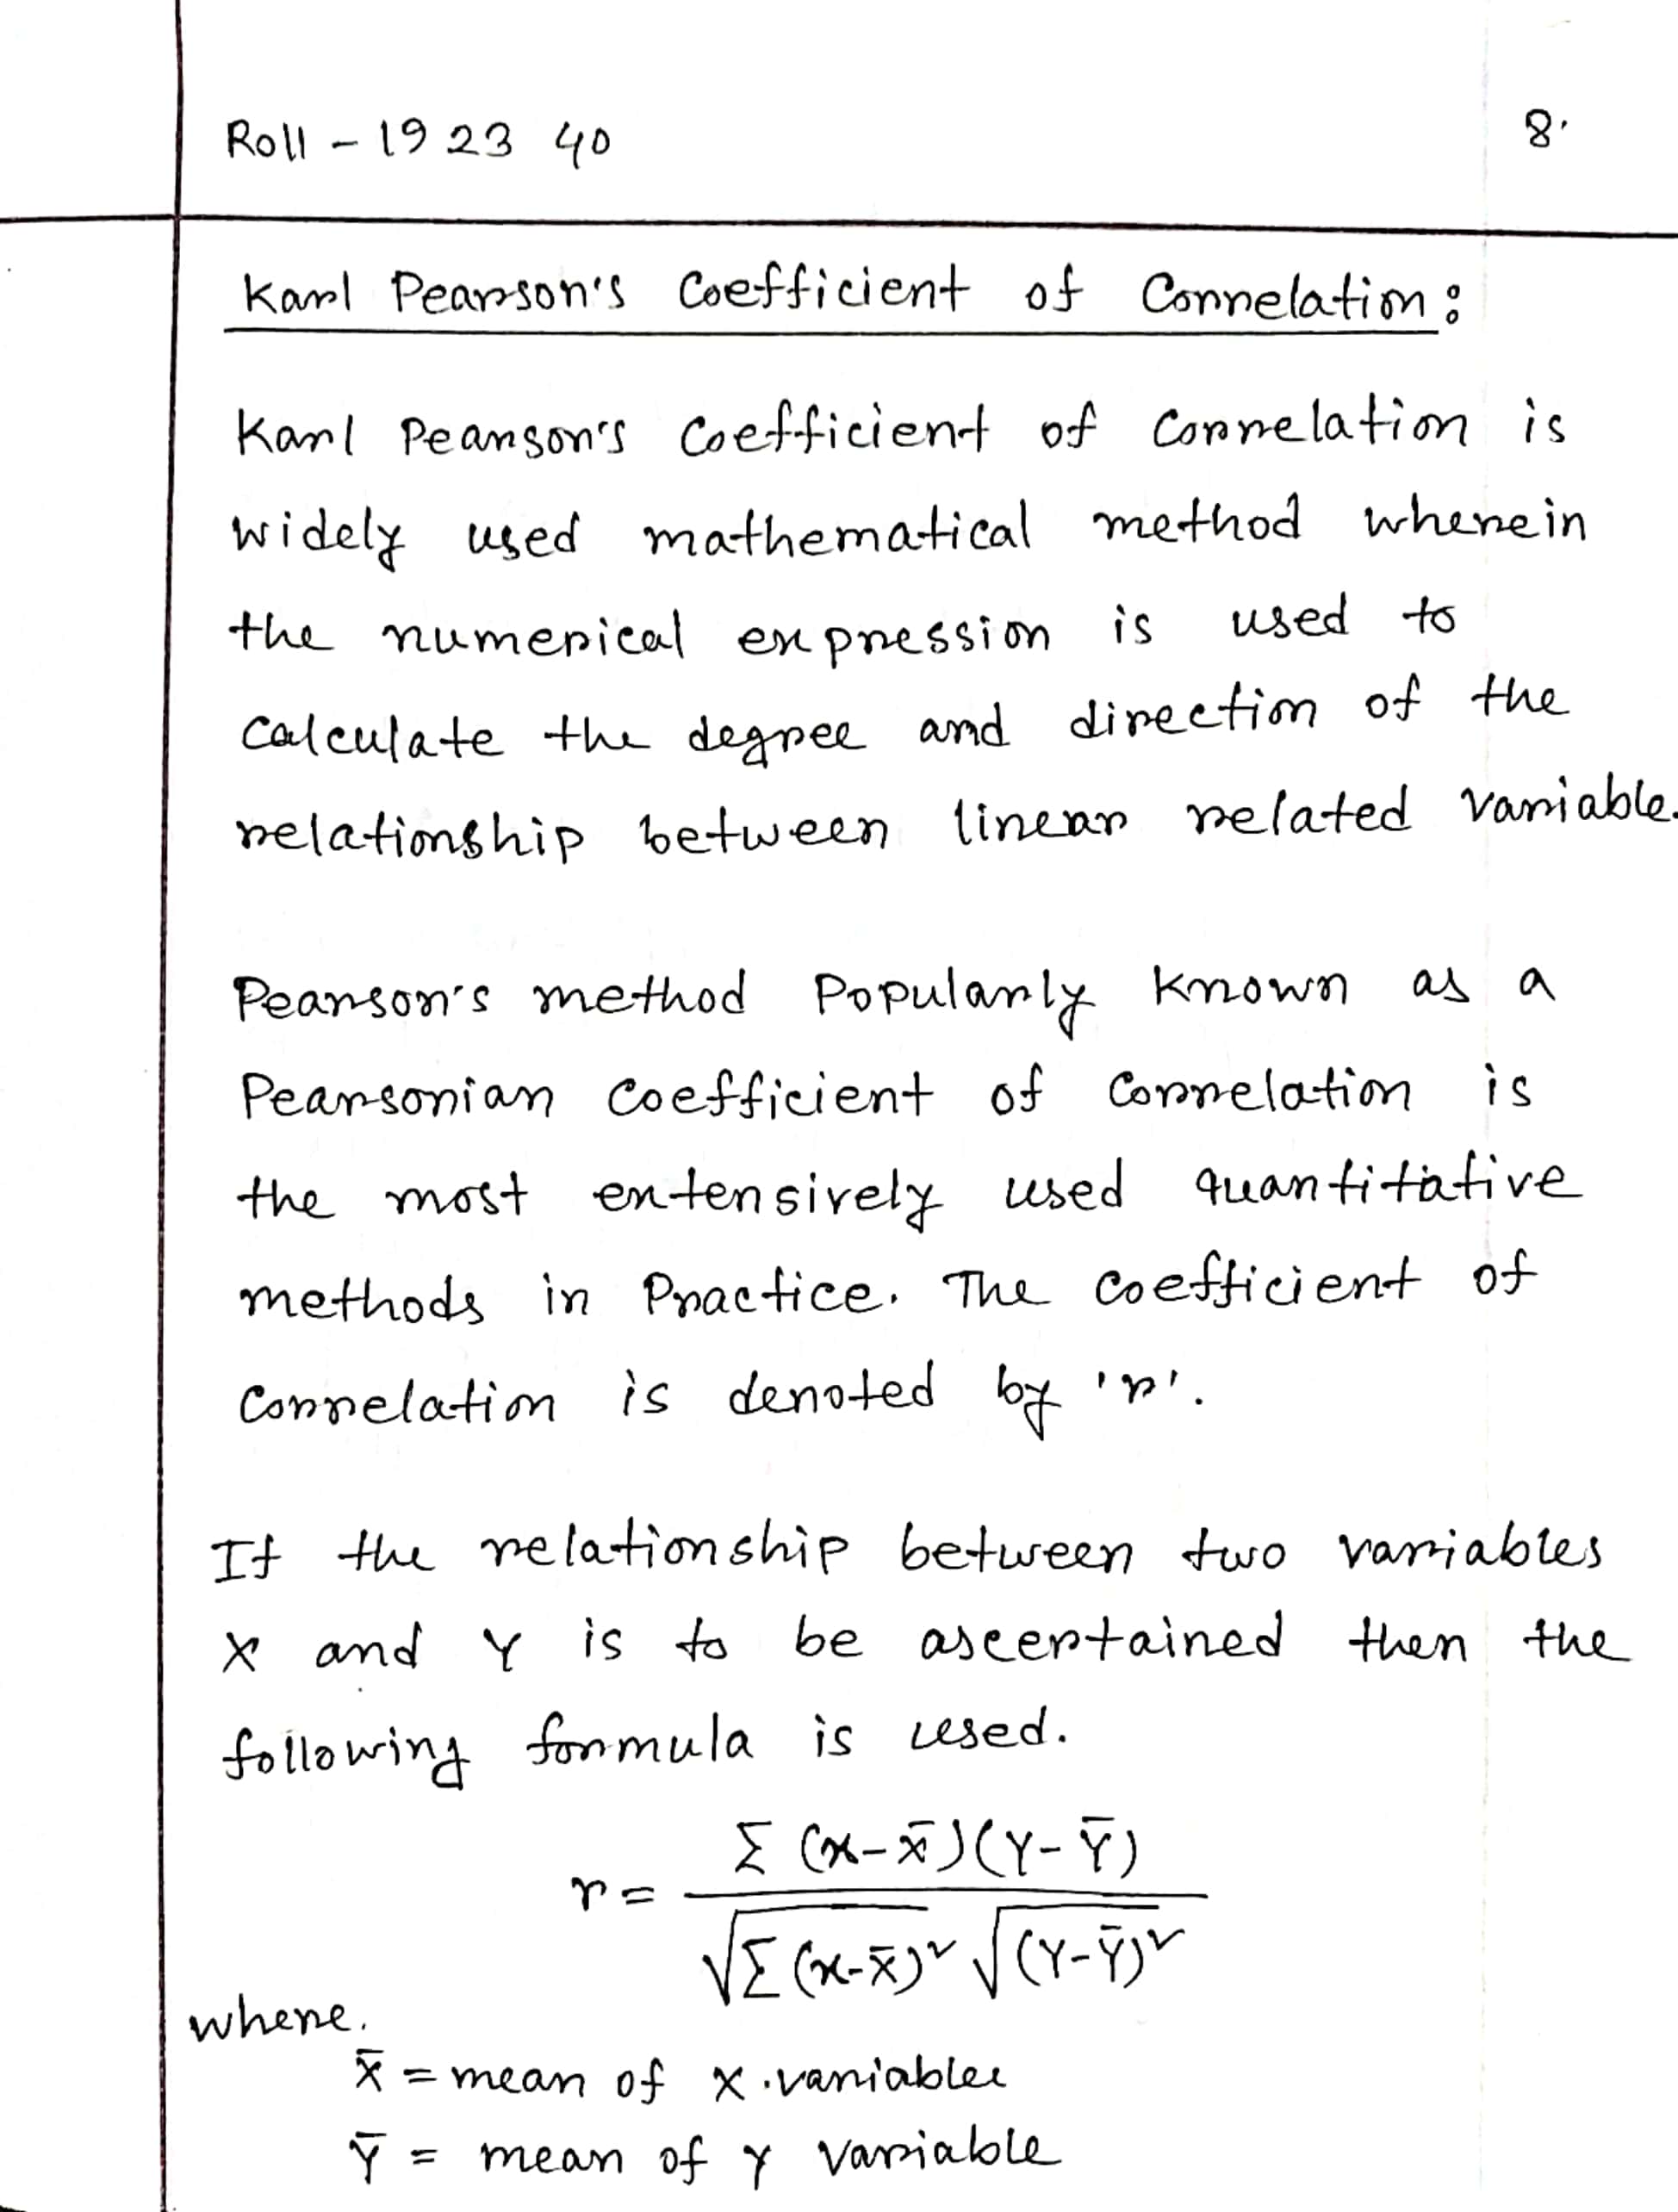 Roll - 19 23 40
8.
Karl Pearson's Coefficient of Correlation:
Karl Pearson's Coefficient of Correlation is
widely used mathematical method wherein
the numerical expression is used to
Calculate the degree and direction of the
relationship between linear related variable.
Pearson's method Popularly Known as a
Pearsonian Coefficient of Correlation is
the most extensively used quantitative
methods in Practice. The Coefficient of
Correlation is denoted by 'r'.
If the relationship between two variables
X and Y is to be ascertained then the
following formula is used.
r = Σ (x-x̄)(Y-Ȳ) / √Σ(x-x̄)² √(Y-Ȳ)²
where.
X̄ = mean of X variable
Ȳ = mean of Y variable